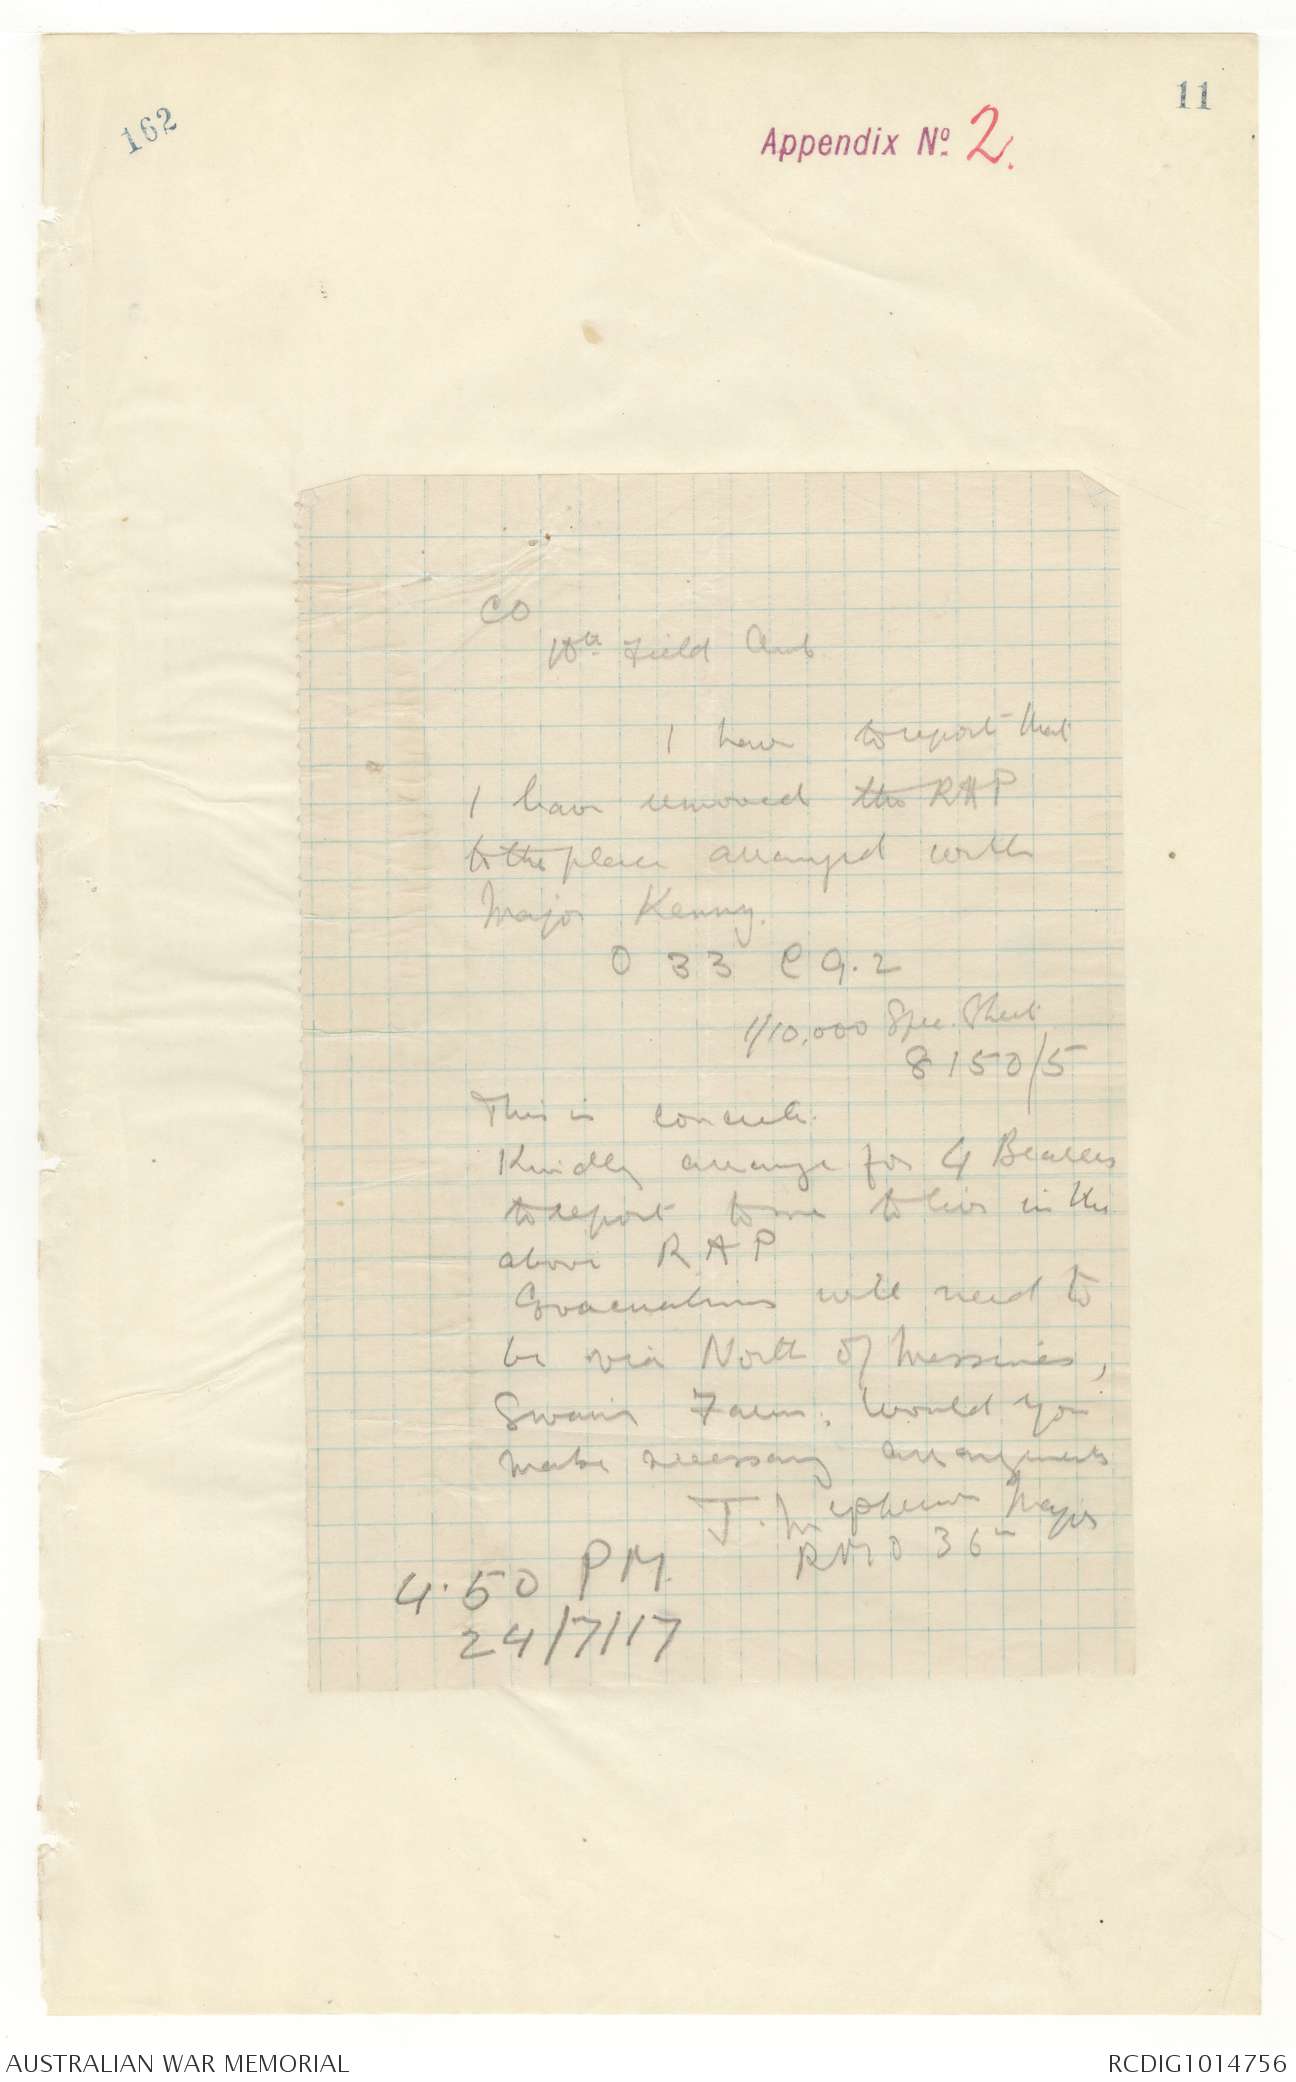 162
11
Appendix No. 2.
CO
10th Field Amb.
I have to report that
I have removed the RAP
to the place arranged with
Major Kenny.
O 33 C 9.2
1/10,000 Spec. Sheet
8150/5
This is concrete.
Kindly arrange for 4 Bearers
to report to me to live in the
above RAP
Evacuations will need to
be via North of Messines,
Swain Farm. Would you
make necessary arrangements
J. Major
RMO 36th
4.50 PM.
24/7/17
AUSTRALIAN WAR MEMORIAL
RCDIG1014756